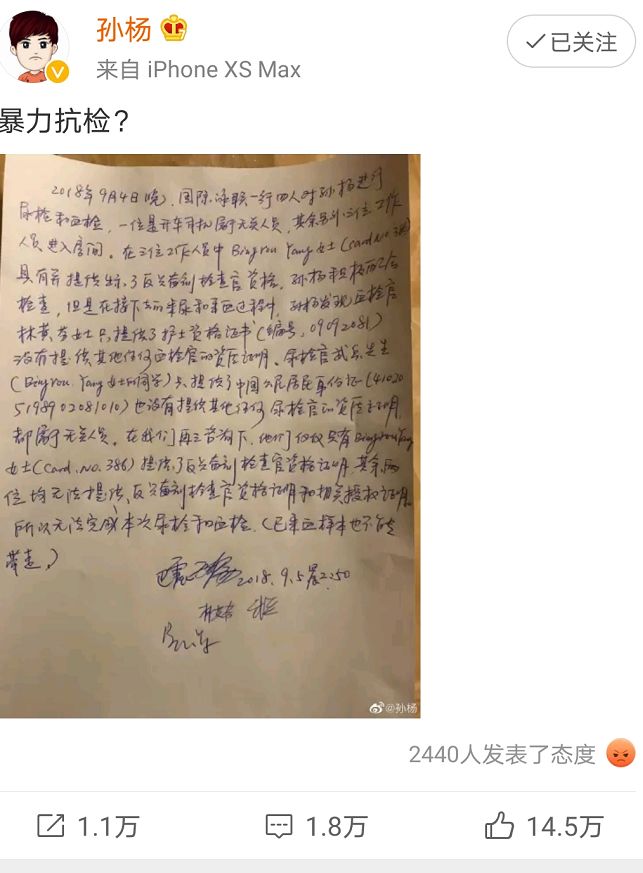 孙杨
已关注
来自 iPhone XS Max
暴力抗检？
2018年9月4日晚，国际泳联一行四人对孙杨进行
尿检和血检，一位是开车司机属于无关人员，其余另外三位工作
人员进入房间。在三位工作人员中 Bingrou Yang女士(card.No.386)
具有并提供出示了反兴奋剂检查官资格。孙杨积极配合
检查，但是在接下去的采尿和采血过程中，孙杨发现血检官
林 女士只提供了护士资格证书(编号，09092081)
没有提供其他任何血检官的资质证明。尿检官 先生
(Bingrou Yang女士的同学)只提供了中国公民居民身份证(
)也没有提供其他任何尿检官的资质证明，
都属于无关人员。在我们再三咨询下，他们仅仅只有Bingrou Yang
女士(Card.No.386)提供了反兴奋剂检查官资格证明，其余两
位均无法提供反兴奋剂检查官资格证明和相关授权证明。
所以无法完成本次尿检和血检。(已采血样本也不能
带走。)
2018.9.5晨2:50
@孙杨
2440人发表了态度
1.1万
1.8万
14.5万